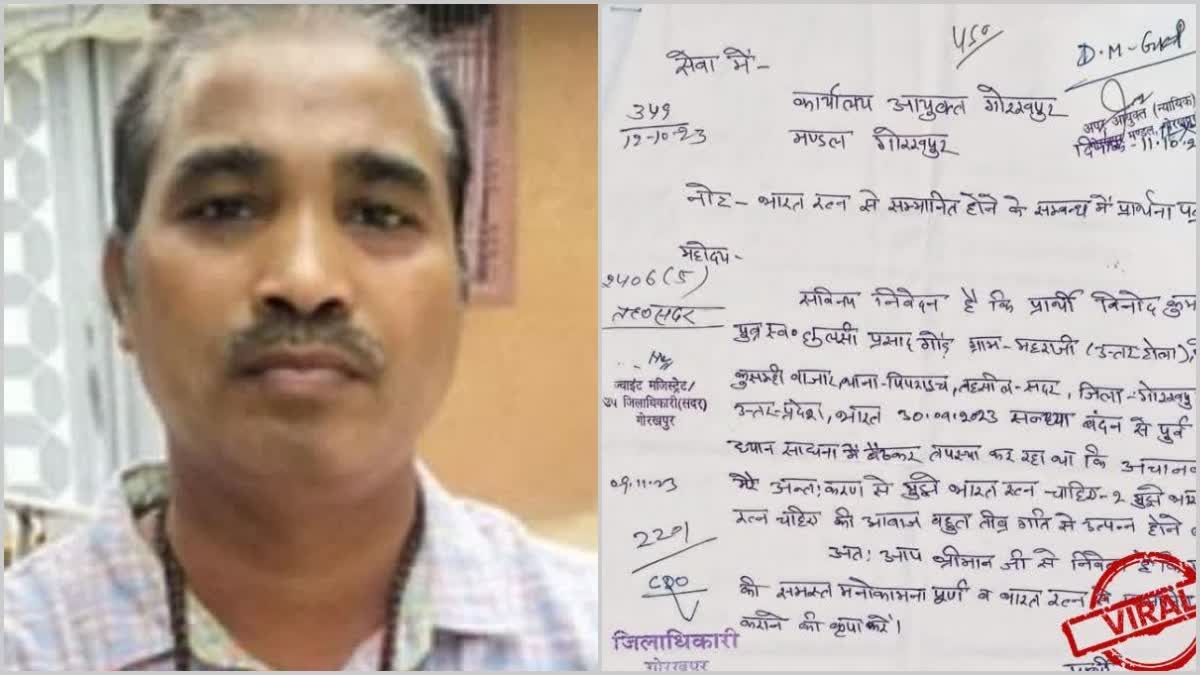 450
D.M-
सेवा में-
कार्यालय आयुक्त गोरखपुर
मण्डल गोरखपुर
359
12-10-23
अपर आयुक्त (न्यायिक)
मण्डल, गोरखपुर
दिनांक-11.10.2
नोट- भारत रत्न से सम्मानित होने के सम्बन्ध में प्रार्थना प
महोदय-
2406(5)
तह०सदर
सविनय निवेदन है कि प्रार्थी विनोद कुम
पुत्र स्व० तुलसी प्रसाद गौड़ ग्राम-महराजी (उत्तर टोला),
कुसम्ही बाजार, थाना-पिपराइच, तहसील-सदर, जिला-गोरखपु
उत्तर-प्रदेश, भारत 30.09.2023 सनध्या बंदन से पूर्व
ध्यान साधना में बैठकर तपस्या कर रहा था कि अचान
मेरे अन्त:करण से मुझे भारत रत्न-चाहिए-2 मुझे भा
रत्न चाहिए की आवाज बहुत तीव्र गति से उत्पन्न होने
अत: आप श्रीमान जी से निवेदन है कि
की समस्त मनोकामना पूर्ण व भारत रत्न से
कराने की कृपा करें।
ज्वाईट मजिस्ट्रेट/
उप जिलाधिकारी(सदर)
गोरखपुर
09.11.23
2291
CRO
जिलाधिकारी
गोरखपुर
VIRAL